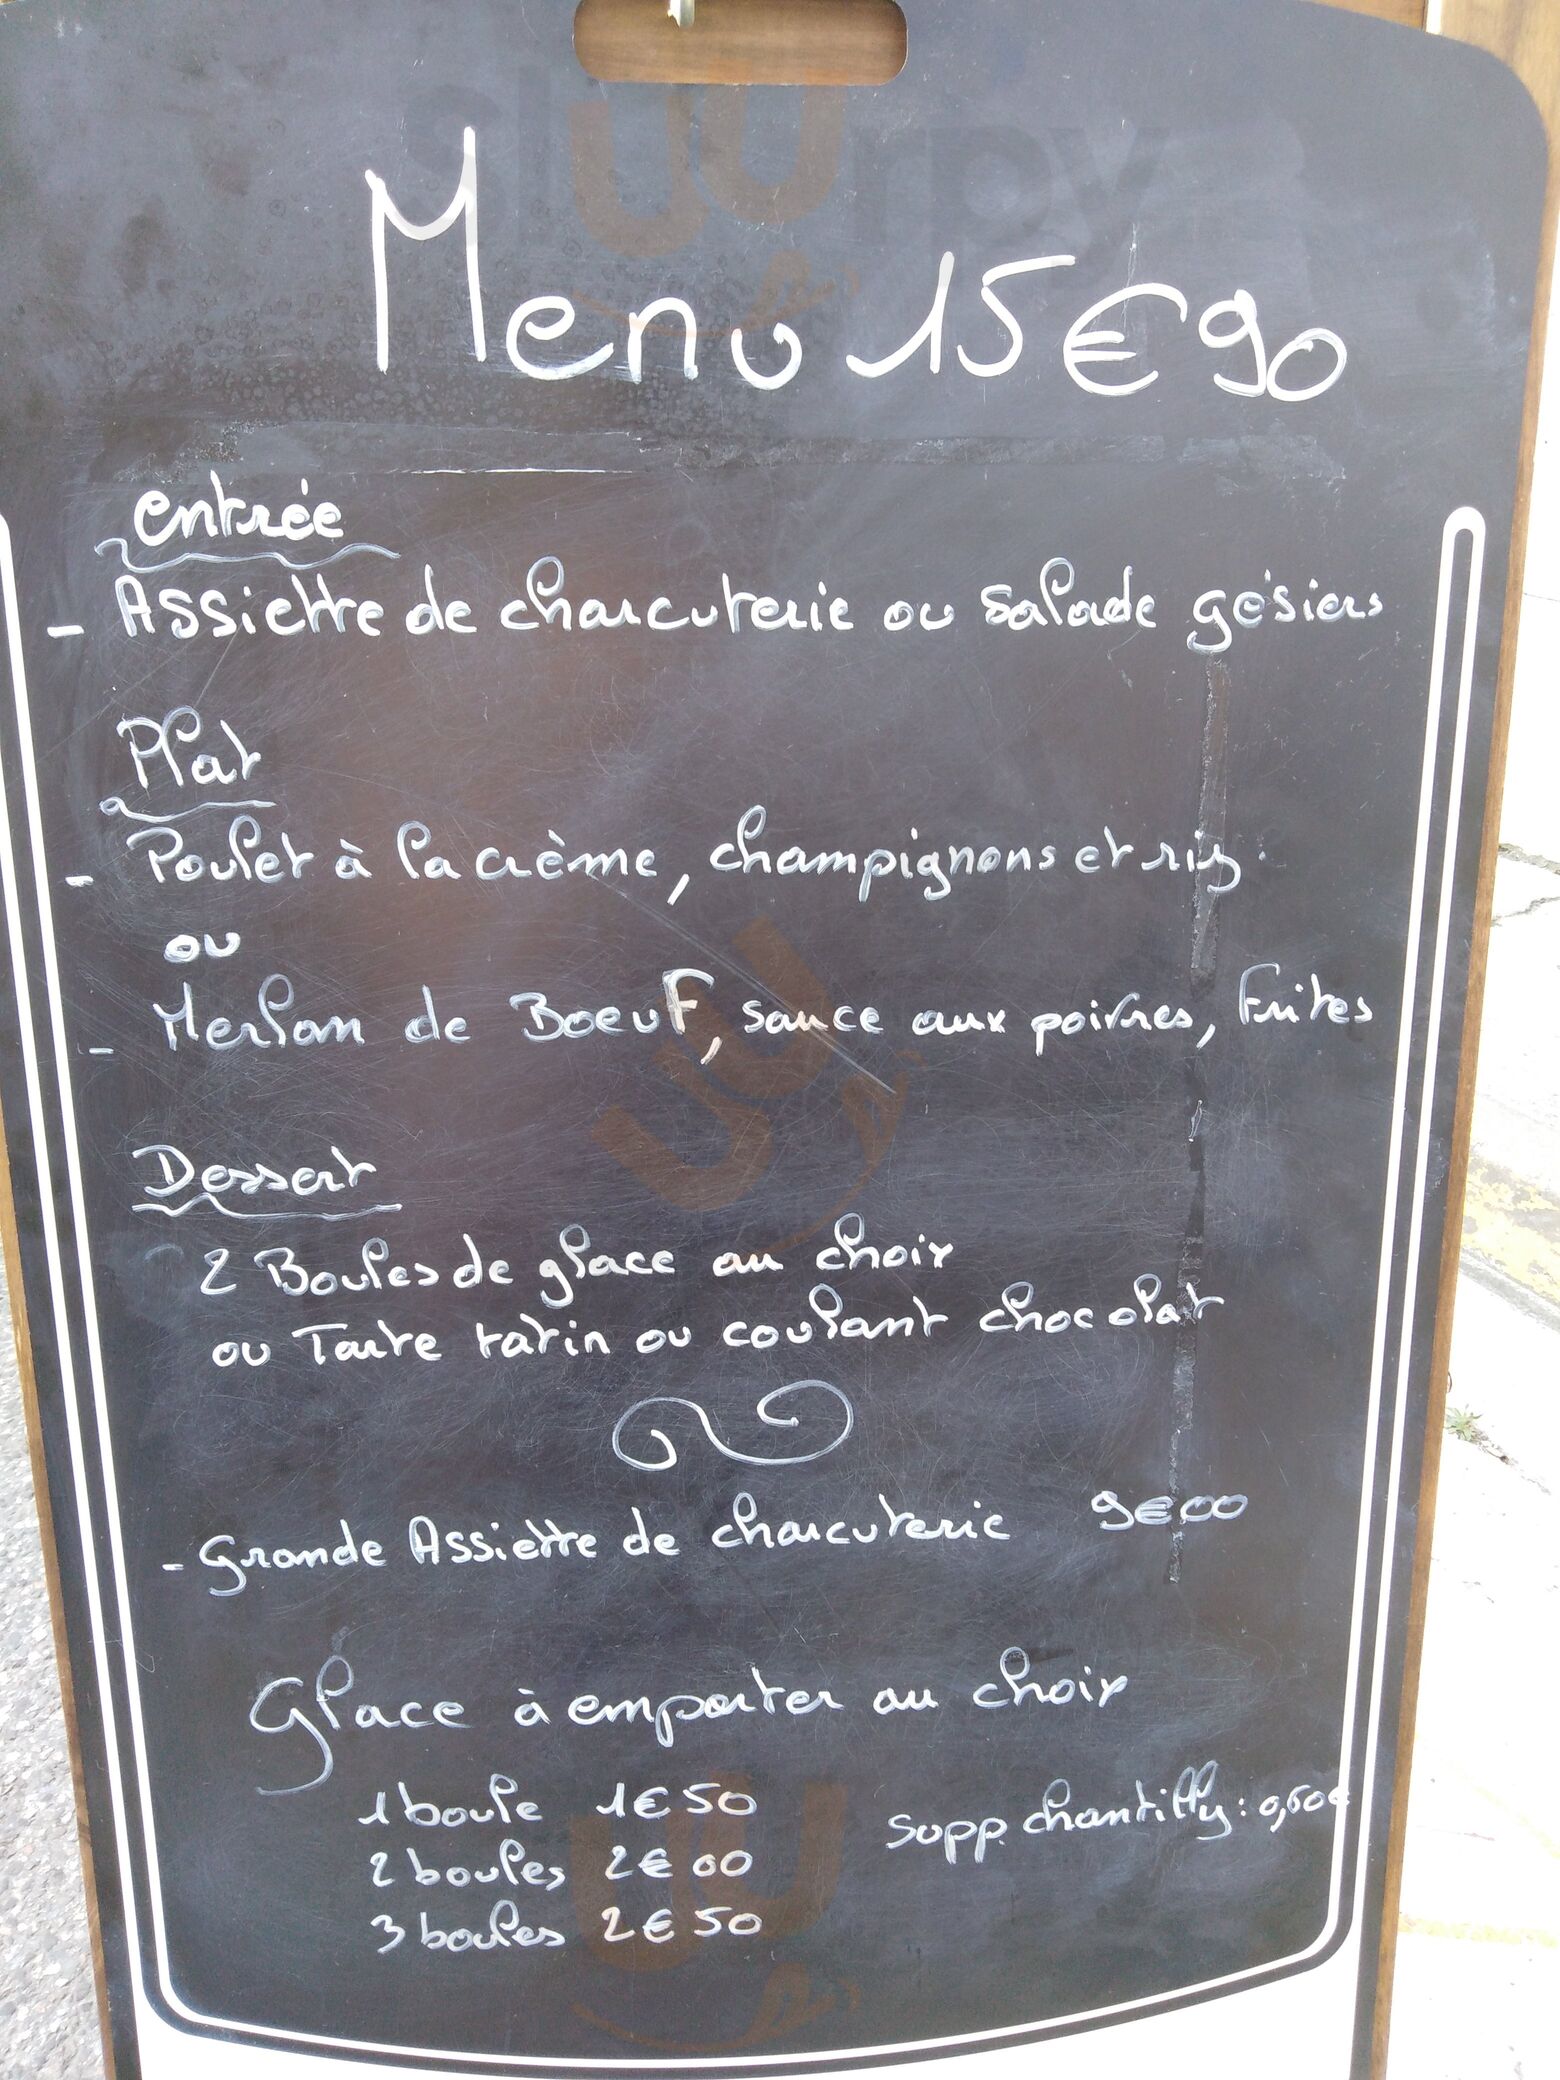 sluurpy
Menu 15€90
entrée
- Assiette de charcuterie ou salade gésiers
Plat
- Poulet à la crème, champignons et riz.
ou
- Merlan de Boeuf, sauce aux poivres, Frites
Dessert
2 Boules de glace au choix
ou Tarte tatin ou coulant chocolat
- Grande Assiette de charcuterie 9€00
Glace à emporter au choix
1 boule 1€50
2 boules 2€00
3 boules 2€50
supp. chantilly : 0,60€